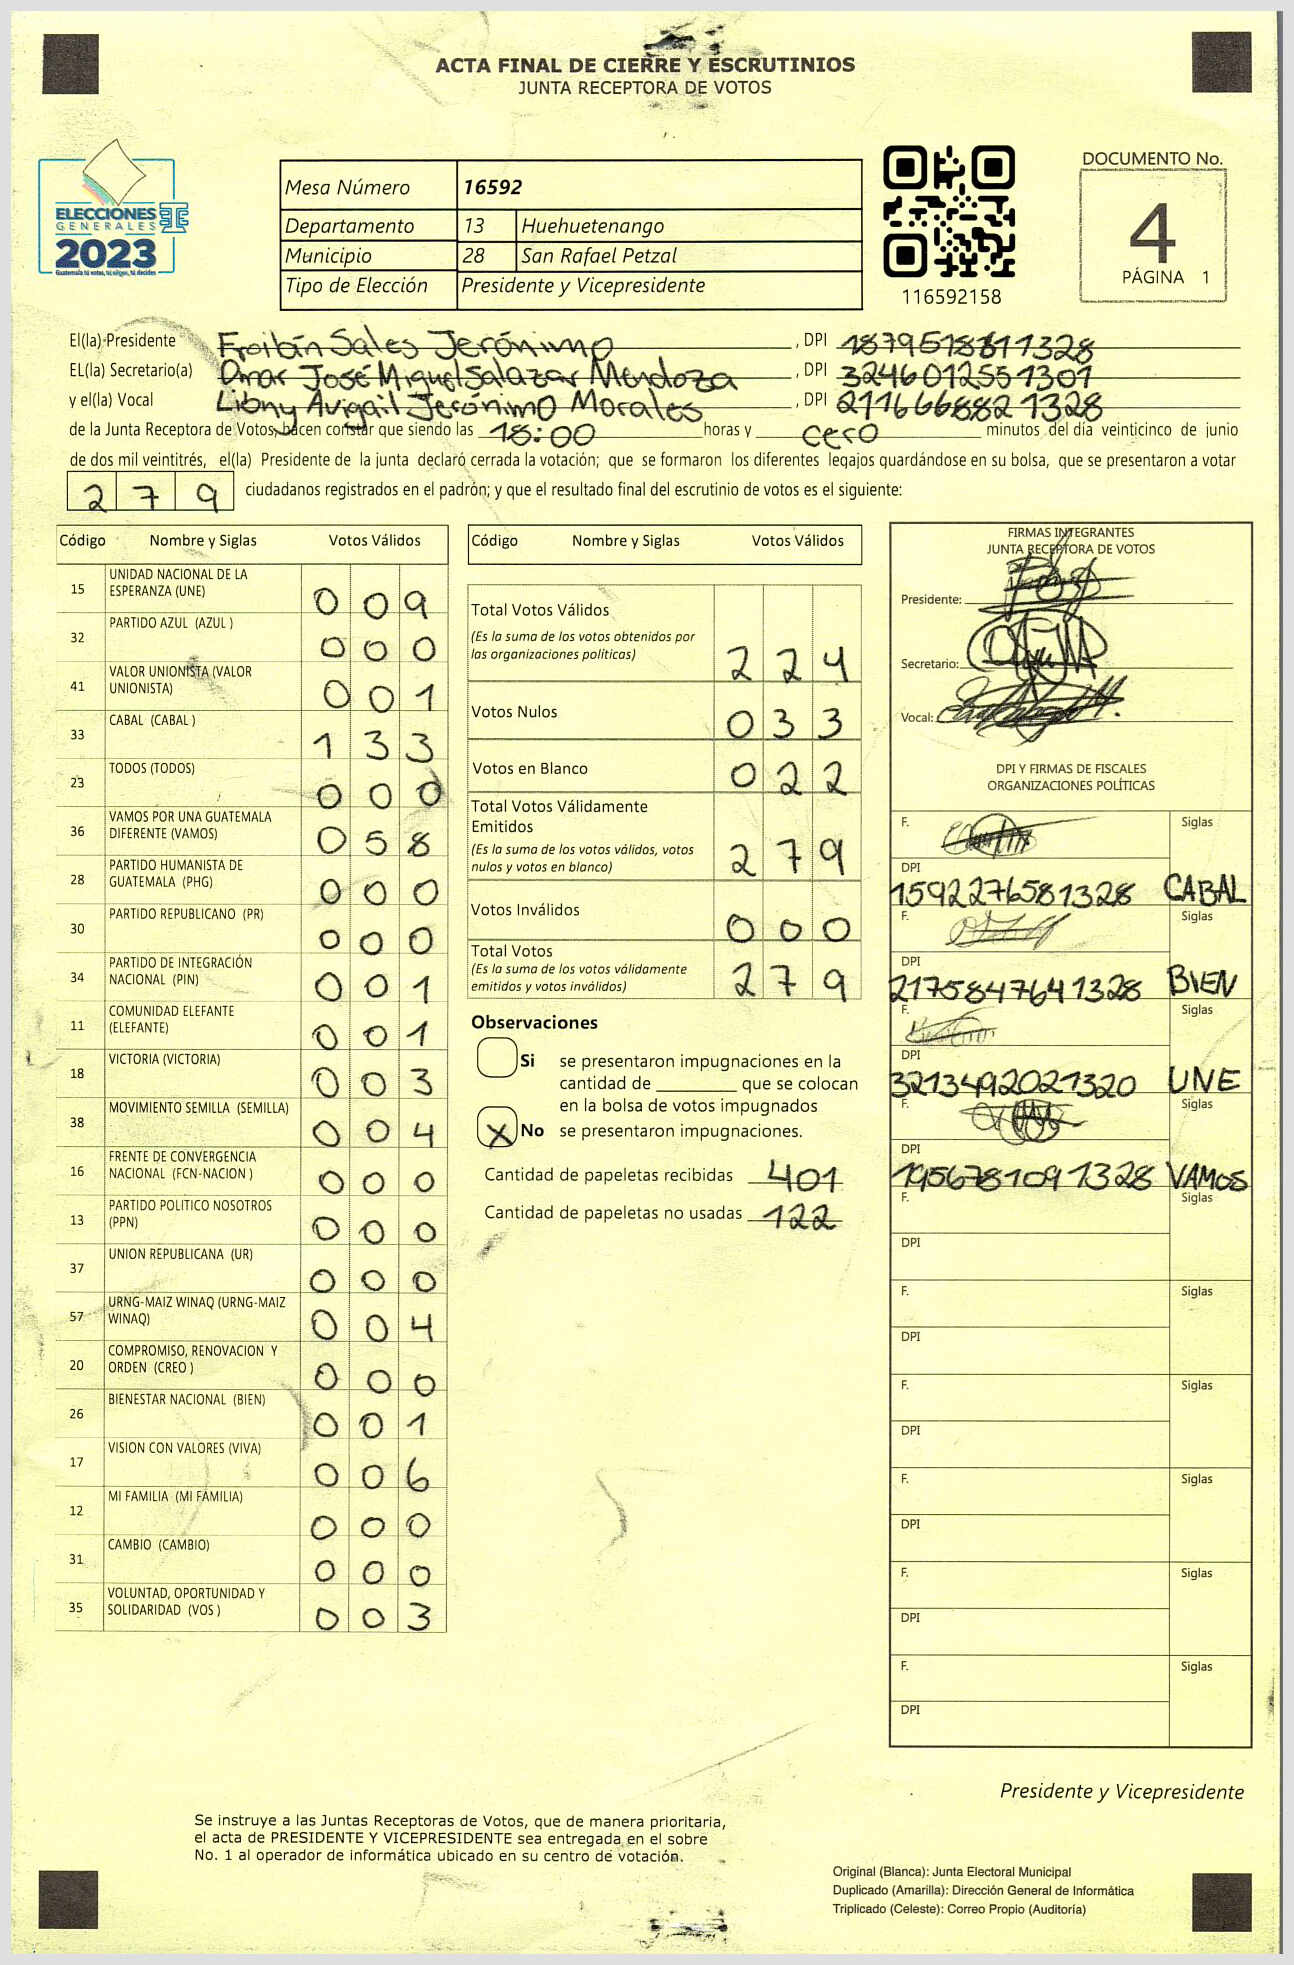 ACTA FINAL DE CIERRE Y ESCRUTINIOS
JUNTA RECEPTORA DE VOTOS
ELECCIONES
GENERALES
2023
Guatemala tú votas, tú eliges, tú decides
Mesa Número 16592
Departamento 13 Huehuetenango
Municipio 28 San Rafael Petzal
Tipo de Elección Presidente y Vicepresidente
116592158
DOCUMENTO No.
4
PÁGINA 1
El(la) Presidente Froilán Sales Jerónimo, DPI 1879518811328
EL(la) Secretario(a) Omar José Miguel Salazar Mendoza, DPI 3246012551301
y el(la) Vocal Libny Avigail Jerónimo Morales, DPI 2116668821328
de la Junta Receptora de Votos, hacen constar que siendo las 18:00 horas y cero minutos del día veinticinco de junio
de dos mil veintitrés, el(la) Presidente de la junta declaró cerrada la votación; que se formaron los diferentes legajos quardándose en su bolsa, que se presentaron a votar
279 ciudadanos registrados en el padrón; y que el resultado final del escrutinio de votos es el siguiente:
Código Nombre y Siglas Votos Válidos
15 UNIDAD NACIONAL DE LA ESPERANZA (UNE) 009
32 PARTIDO AZUL (AZUL ) 000
41 VALOR UNIONISTA (VALOR UNIONISTA) 001
33 CABAL (CABAL ) 133
23 TODOS (TODOS) 000
36 VAMOS POR UNA GUATEMALA DIFERENTE (VAMOS) 058
28 PARTIDO HUMANISTA DE GUATEMALA (PHG) 000
30 PARTIDO REPUBLICANO (PR) 000
34 PARTIDO DE INTEGRACIÓN NACIONAL (PIN) 001
11 COMUNIDAD ELEFANTE (ELEFANTE) 001
18 VICTORIA (VICTORIA) 003
38 MOVIMIENTO SEMILLA (SEMILLA) 004
16 FRENTE DE CONVERGENCIA NACIONAL (FCN-NACION ) 000
13 PARTIDO POLITICO NOSOTROS (PPN) 000
37 UNION REPUBLICANA (UR) 000
57 URNG-MAIZ WINAQ (URNG-MAIZ WINAQ) 004
20 COMPROMISO, RENOVACION Y ORDEN (CREO ) 000
26 BIENESTAR NACIONAL (BIEN) 001
17 VISION CON VALORES (VIVA) 006
12 MI FAMILIA (MI FAMILIA) 000
31 CAMBIO (CAMBIO) 000
35 VOLUNTAD, OPORTUNIDAD Y SOLIDARIDAD (VOS ) 003
Código Nombre y Siglas Votos Válidos
Total Votos Válidos
(Es la suma de los votos obtenidos por
las organizaciones políticas) 224
Votos Nulos 033
Votos en Blanco 022
Total Votos Válidamente
Emitidos
(Es la suma de los votos válidos, votos
nulos y votos en blanco) 279
Votos Inválidos 000
Total Votos
(Es la suma de los votos válidamente
emitidos y votos inválidos) 279
Observaciones
Si se presentaron impugnaciones en la
cantidad de ________ que se colocan
en la bolsa de votos impugnados
X No se presentaron impugnaciones.
Cantidad de papeletas recibidas 401
Cantidad de papeletas no usadas 122
FIRMAS INTEGRANTES
JUNTA RECEPTORA DE VOTOS
Presidente:
Secretario:
Vocal:
DPI Y FIRMAS DE FISCALES
ORGANIZACIONES POLÍTICAS
F. Siglas
DPI
1592276581328 CABAL
F. Siglas
DPI
2175847641328 BIEN
F. Siglas
DPI
3213492021320 UNE
F. Siglas
DPI
1956781091328 VAMOS
F. Siglas
DPI
F. Siglas
DPI
F. Siglas
DPI
F. Siglas
DPI
F. Siglas
DPI
F. Siglas
DPI
Presidente y Vicepresidente
Se instruye a las Juntas Receptoras de Votos, que de manera prioritaria,
el acta de PRESIDENTE Y VICEPRESIDENTE sea entregada en el sobre
No. 1 al operador de informática ubicado en su centro de votación.
Original (Blanca): Junta Electoral Municipal
Duplicado (Amarilla): Dirección General de Informática
Triplicado (Celeste): Correo Propio (Auditoría)